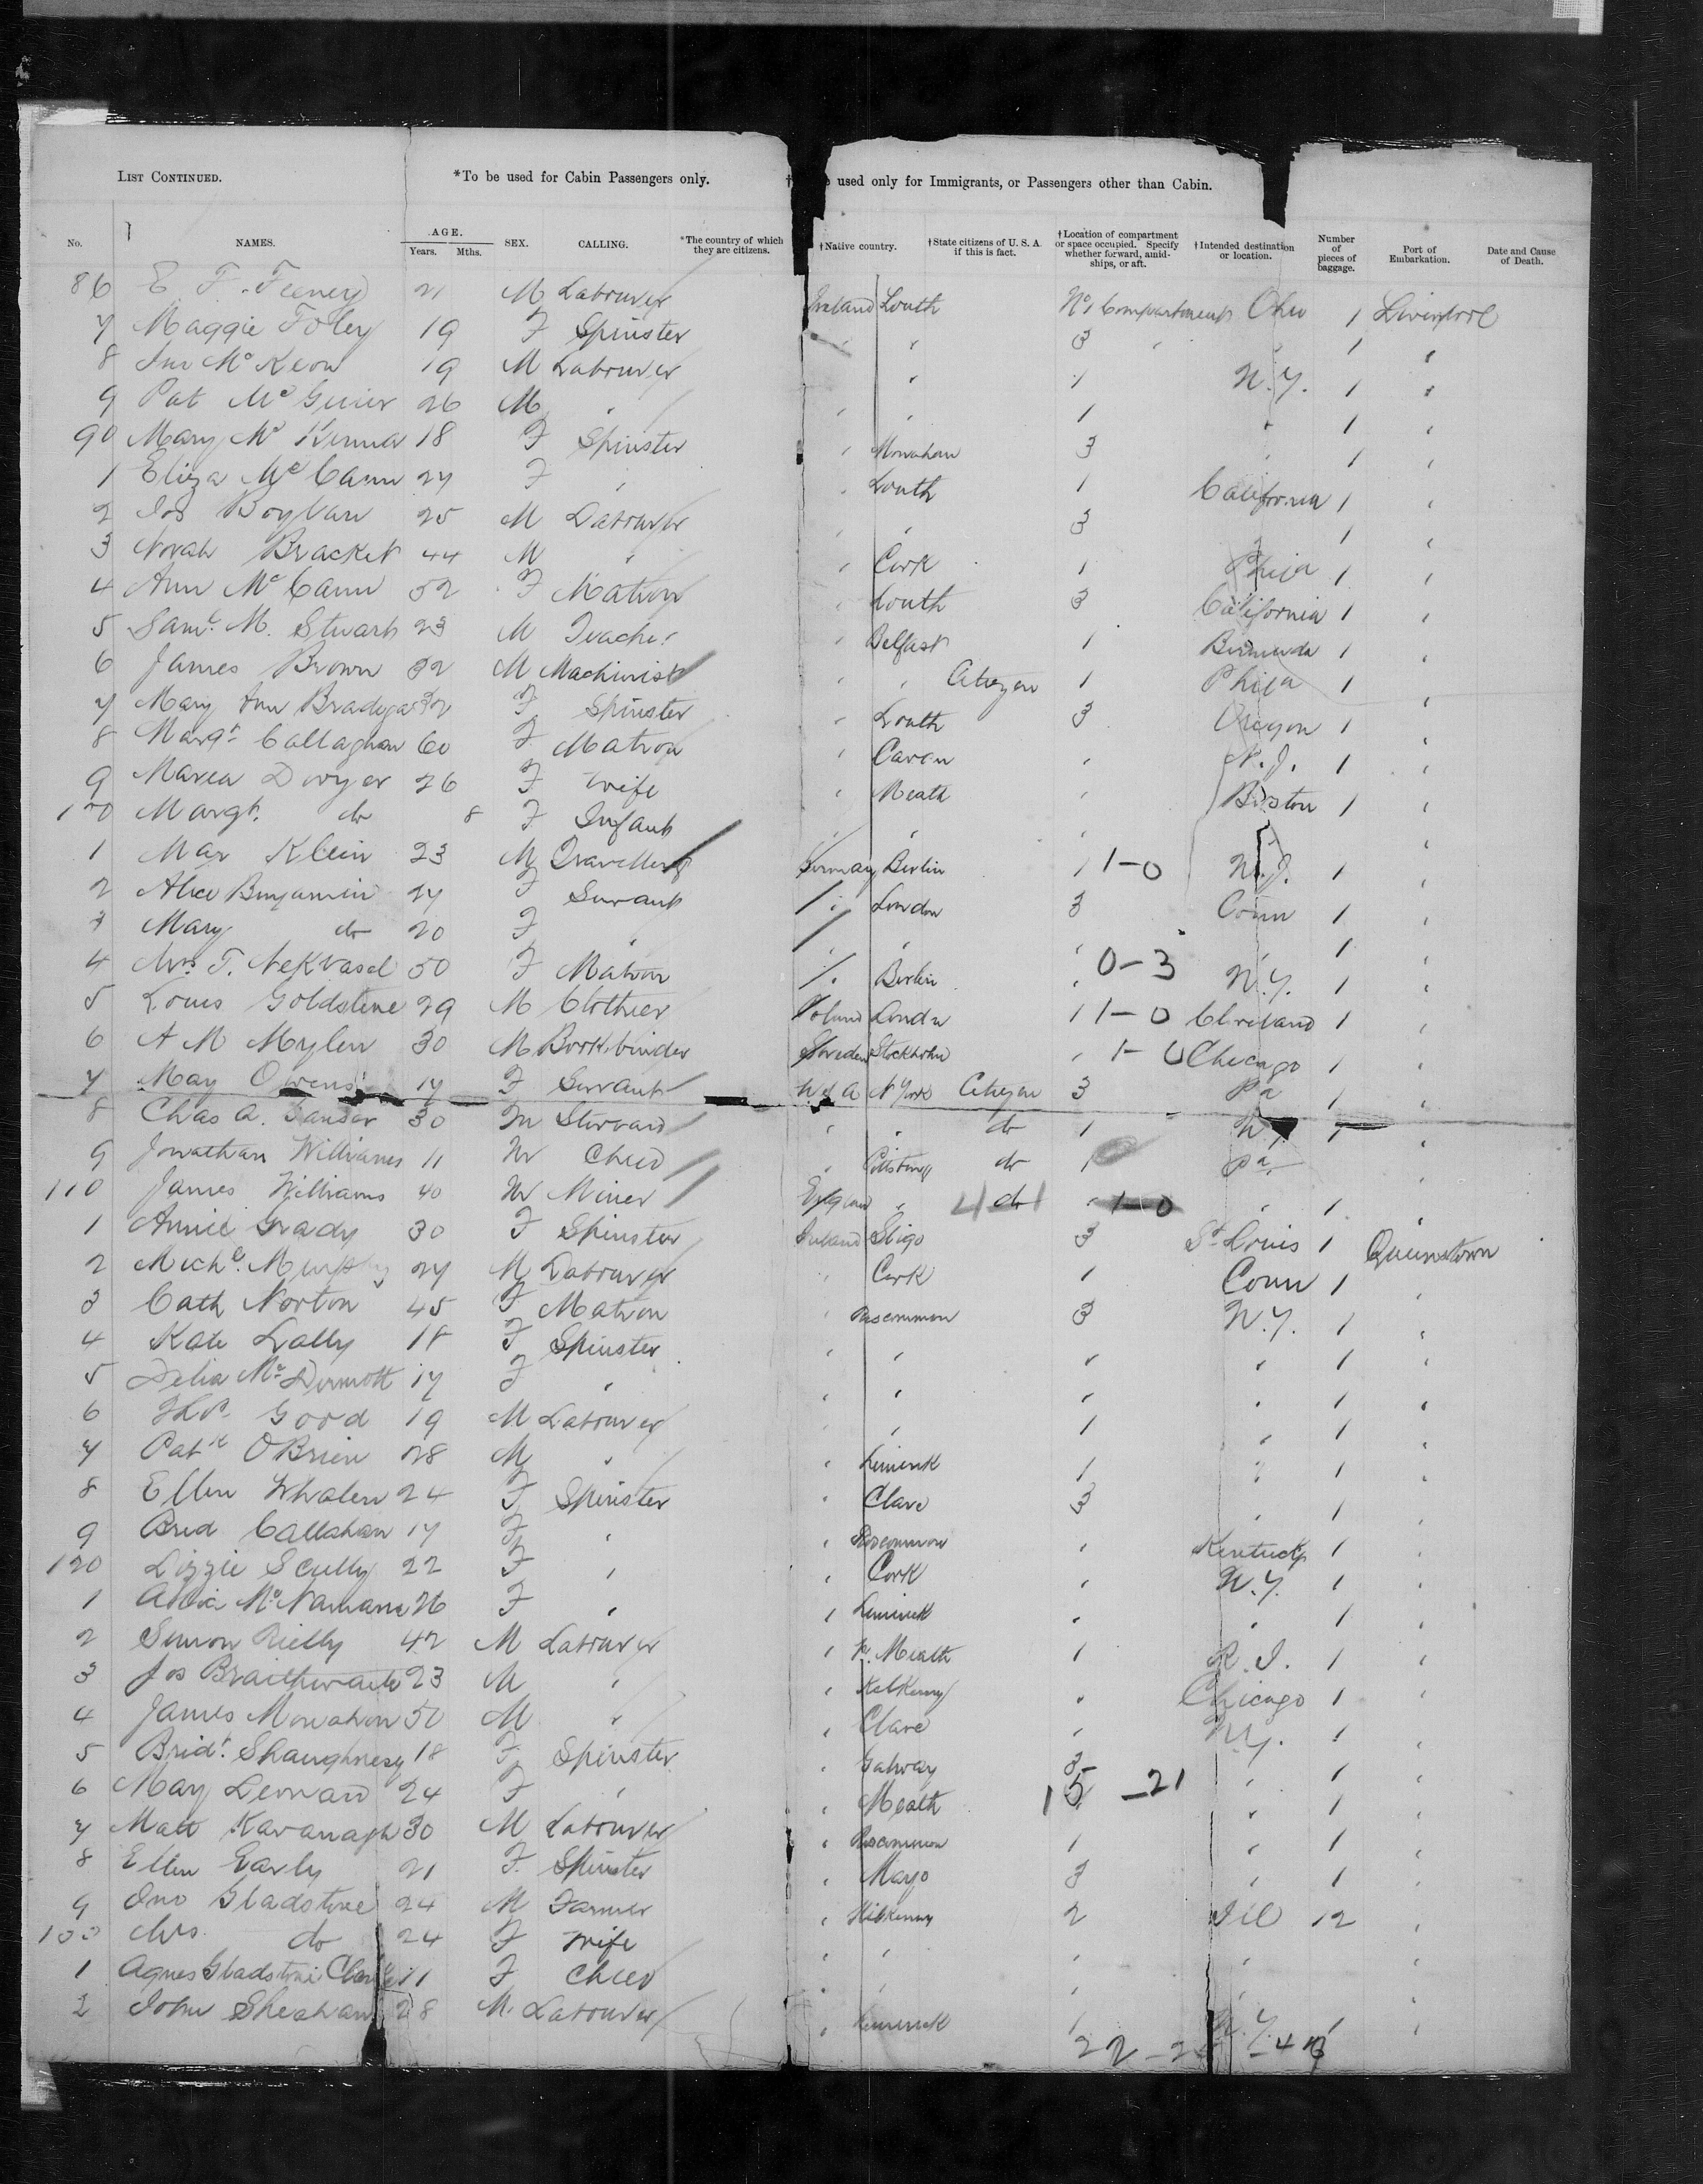 LIST CONTINUED. *To be used for Cabin Passengers only. used only for Immigrants, or Passengers other than Cabin.
No. NAMES. AGE. Years. Mths. SEX. CALLING. *The country of which they are citizens. †Native country. †State citizens of U. S. A. if this is fact. †Location of compartment or space occupied. Specify whether forward, amidships, or aft. †Intended destination or location. Number of pieces of baggage. Port of Embarkation. Date and Cause of Death.
86 E F. Feeney 21 M Labourer Ireland Louth No 1 Compartment Ohio 1 Liverpool
7 Maggie Foley 19 F Spinster " " 3 " " 1 "
8 Jno McKeon 19 M Labourer " 1 N.Y. 1 "
9 Pat McGuier 26 M " " " 1 " 1 "
90 Mary McKenna 18 F Spinster " Monahan 3 " 1 "
1 Eliza McCann 27 F " " Louth 1 California 1 "
2 Jos Boylan 25 M Labourer " " 3 " 1 "
3 Norah Bracket 44 M " " Cork 1 Phila 1 "
4 Ann McCann 52 F Matron " Louth 3 California 1 "
5 Saml. M. Stuart 23 M Teacher " Belfast 1 Bermuda 1 "
6 James Brown 32 M Machinist " " Citizen 1 Phila 1 "
7 Mary Ann 32 F Spinster " Louth 3 Oregon 1 "
8 Margt Callaghan 60 F Matron " Cavan " N.J. 1 "
9 Maria Dwyer 26 F Wife " Meath " Boston 1 "
100 Margt. do 8 F Infant " " " "
1 Max Klein 23 M Traveller Germany Berlin 1 1-0 N.J. 1 "
2 Alice Benjamin 27 F Servant " London 3 Conn 1 "
3 Mary do 20 F " " " " " 1 "
4 Mrs T. Nekvasel 50 F Matron " Berlin " 0-3 N.Y. 1 "
5 Louis Goldstine 29 M Clothier Poland London 1 1-0 Cleveland 1 "
6 A M Mylen 30 M Bookbinder Sweden Stockholm " 1-0 Chicago 1 "
7 May Owens 17 F Servant U S A N York Citizen 3 Pa 1 "
8 Chas A. 30 M Steward " " do 1 N.Y. 1 "
9 Jonathan Williams 11 M Child " Pittsburg do 1 Pa "
110 James Williams 40 M Miner England " do " 1-0 " 1 "
1 Annie Grady 30 F Spinster Ireland Sligo 3 St Louis 1 Queenstown
2 Michl. Murphy 27 M Labourer " Cork 1 Conn 1 "
3 Cath Norton 45 F Matron " Roscommon 3 N.Y. 1 "
4 Kate Lally 18 F Spinster " " " " 1 "
5 Delia McDermott 17 F " " " " " 1 "
6 Good 19 M Labourer " " 1 " 1 "
7 Patk O'Brien 28 M " " Limerick 1 " 1 "
8 Ellen Whalen 24 F Spinster " Clare 3 " 1 "
9 Brid Callahan 17 F " " Roscommon " Kentucky 1 "
120 Lizzie Scully 22 F " " Cork " N.Y. 1 "
1 McNamara 26 F " " Limerick " " 1 "
2 Simon Rielly 42 M Labourer " W. Meath 1 R.I. 1 "
3 Jos Braithwaite 23 M " " Kilkenny " Chicago 1 "
4 James Monahon 50 M " " Clare " N.Y. 1 "
5 Bridt. Shaughnesy 18 F Spinster " Galway 3 " 1 "
6 May Leonard 24 F " " Meath 15 -21 " 1 "
7 Matt Kavanagh 30 M Labourer " Roscommon 1 " 1 "
8 Ellen Early 21 F Spinster " Mayo 3 " 1 "
9 Jno Gladstone 24 M Farmer " Kilkenny 2 Ill 12 "
130 Mrs. do 24 F Wife " " " " "
1 Agnes Gladstone 11 F Child " " " " "
2 John Sheahan 28 M Labourer " Limerick 1 N.Y. 1 "